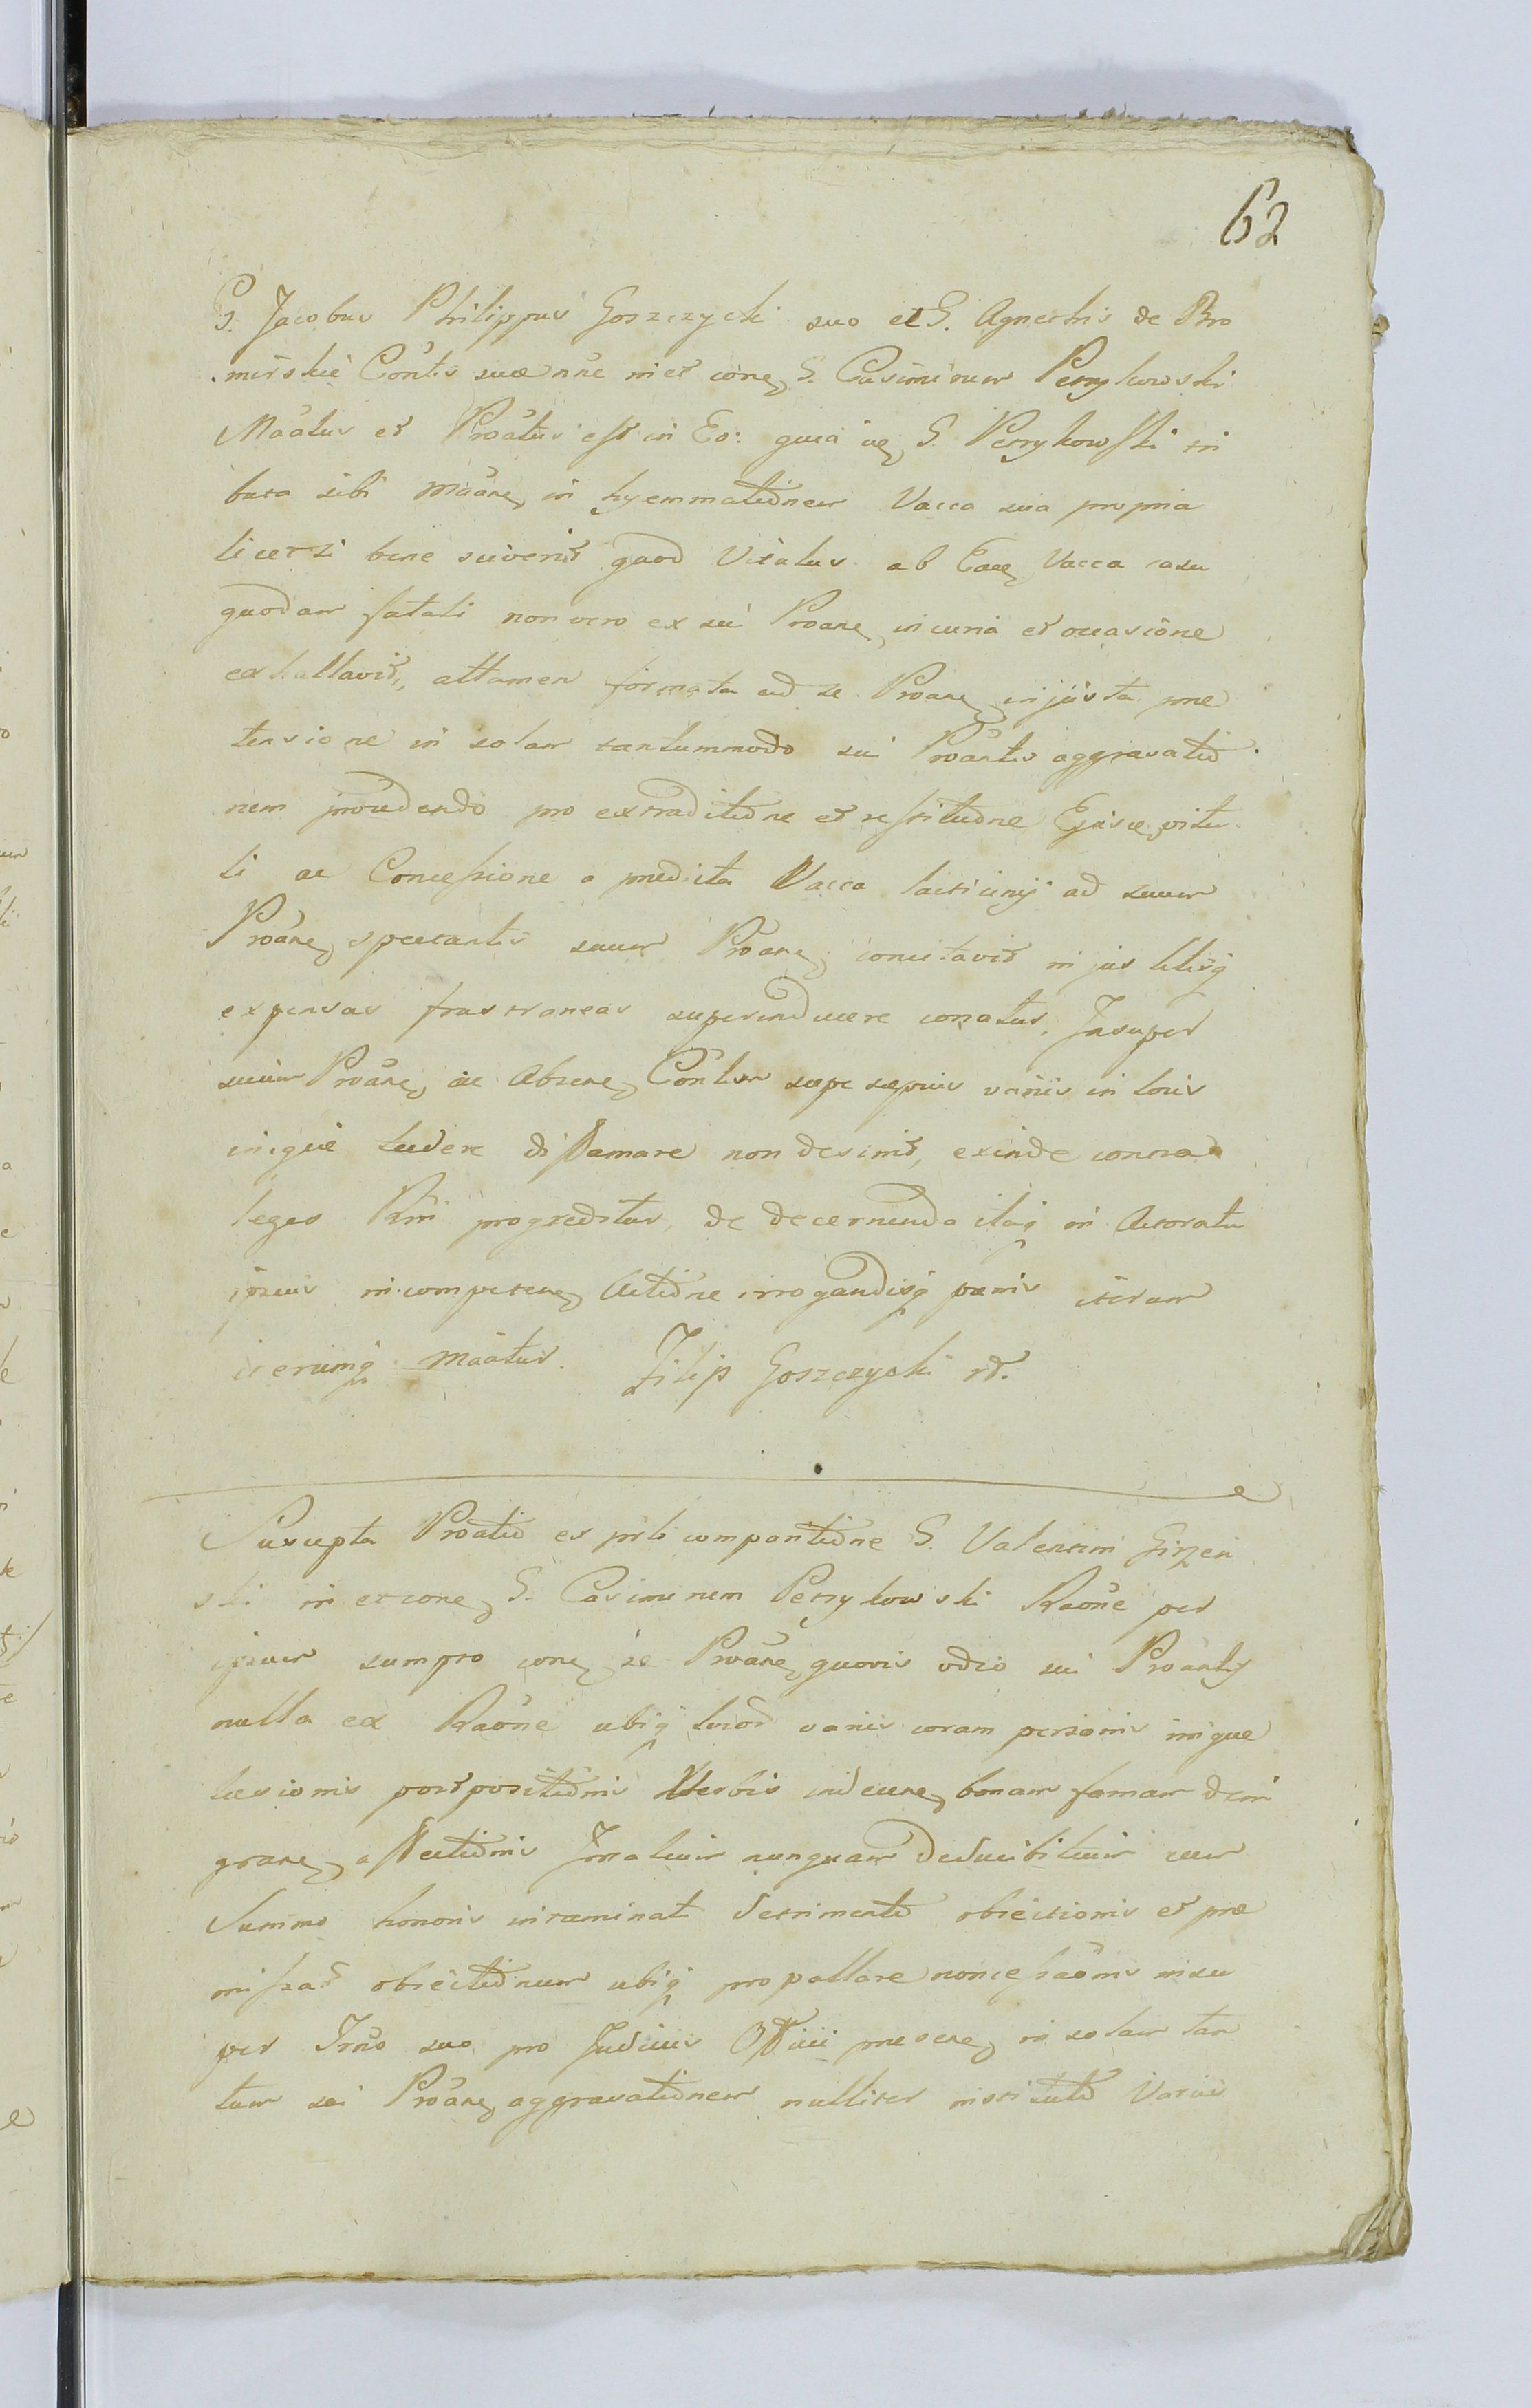 62
G. Jacobus Philippus Goszczycki suo et G. Agnethis de Bro
mirskie Contis suae nne in et conẽ G. Casimirum Perzykowski
Maãtus et Proãtus est in Eo: quia iẽ G. Perzykowski tri
buta sibi Mãane in hyemmationem Vacca sua propria
licet si bene sciverit quod Vitulus ab Eaẽ Vacca casu
quodam fatali non vero ex sui Proane incuria et occasione
exhallavit, attamen formata ad se Proane injusta pre
tensione in solam tantummodo sui Proantis aggravatio
nem procedendo pro extraditione et restitutione Ejusce vitu
li ac Concessione a predicta Vacca lacticinij ad suum
Proane spectantis suum Proane concitavit in jus litisq
expensas frustraneas superinducere conatur, Insuper
suum Proane, ac Absene, Contem saepe saepius variis in locis
inique ludere diffamare non desinit, exinde contra
leges Rni progreditur, de decernenda itaq in Actoratu
ipsius incompetene Actione irrogandisq paenis iterum
iterumq Maãtur. Filip Goszczycki rd.
Suscepta Proatio ex prti compartione G. Valentini Girzen
ski in et cone G. Casimirum Perzykowski Raone per
ipsum sumpro cone se Proane quovis odio sui Proantis
nulla ex Raone ubiq locor variis coram personis inique
laesionis postpositionis Verbis inducene, bonam famam deni
grane, affectionis Irratium nunquam deducibilium cum
Summo honoris intaminati detrimento obiectionis et prae
missar obiectionum ubiq propallare non cessaonis insu
per Irno suo pro Judiciis Officii presene in solam tan
tum sui Proane aggravationem nulliter instituto Variis